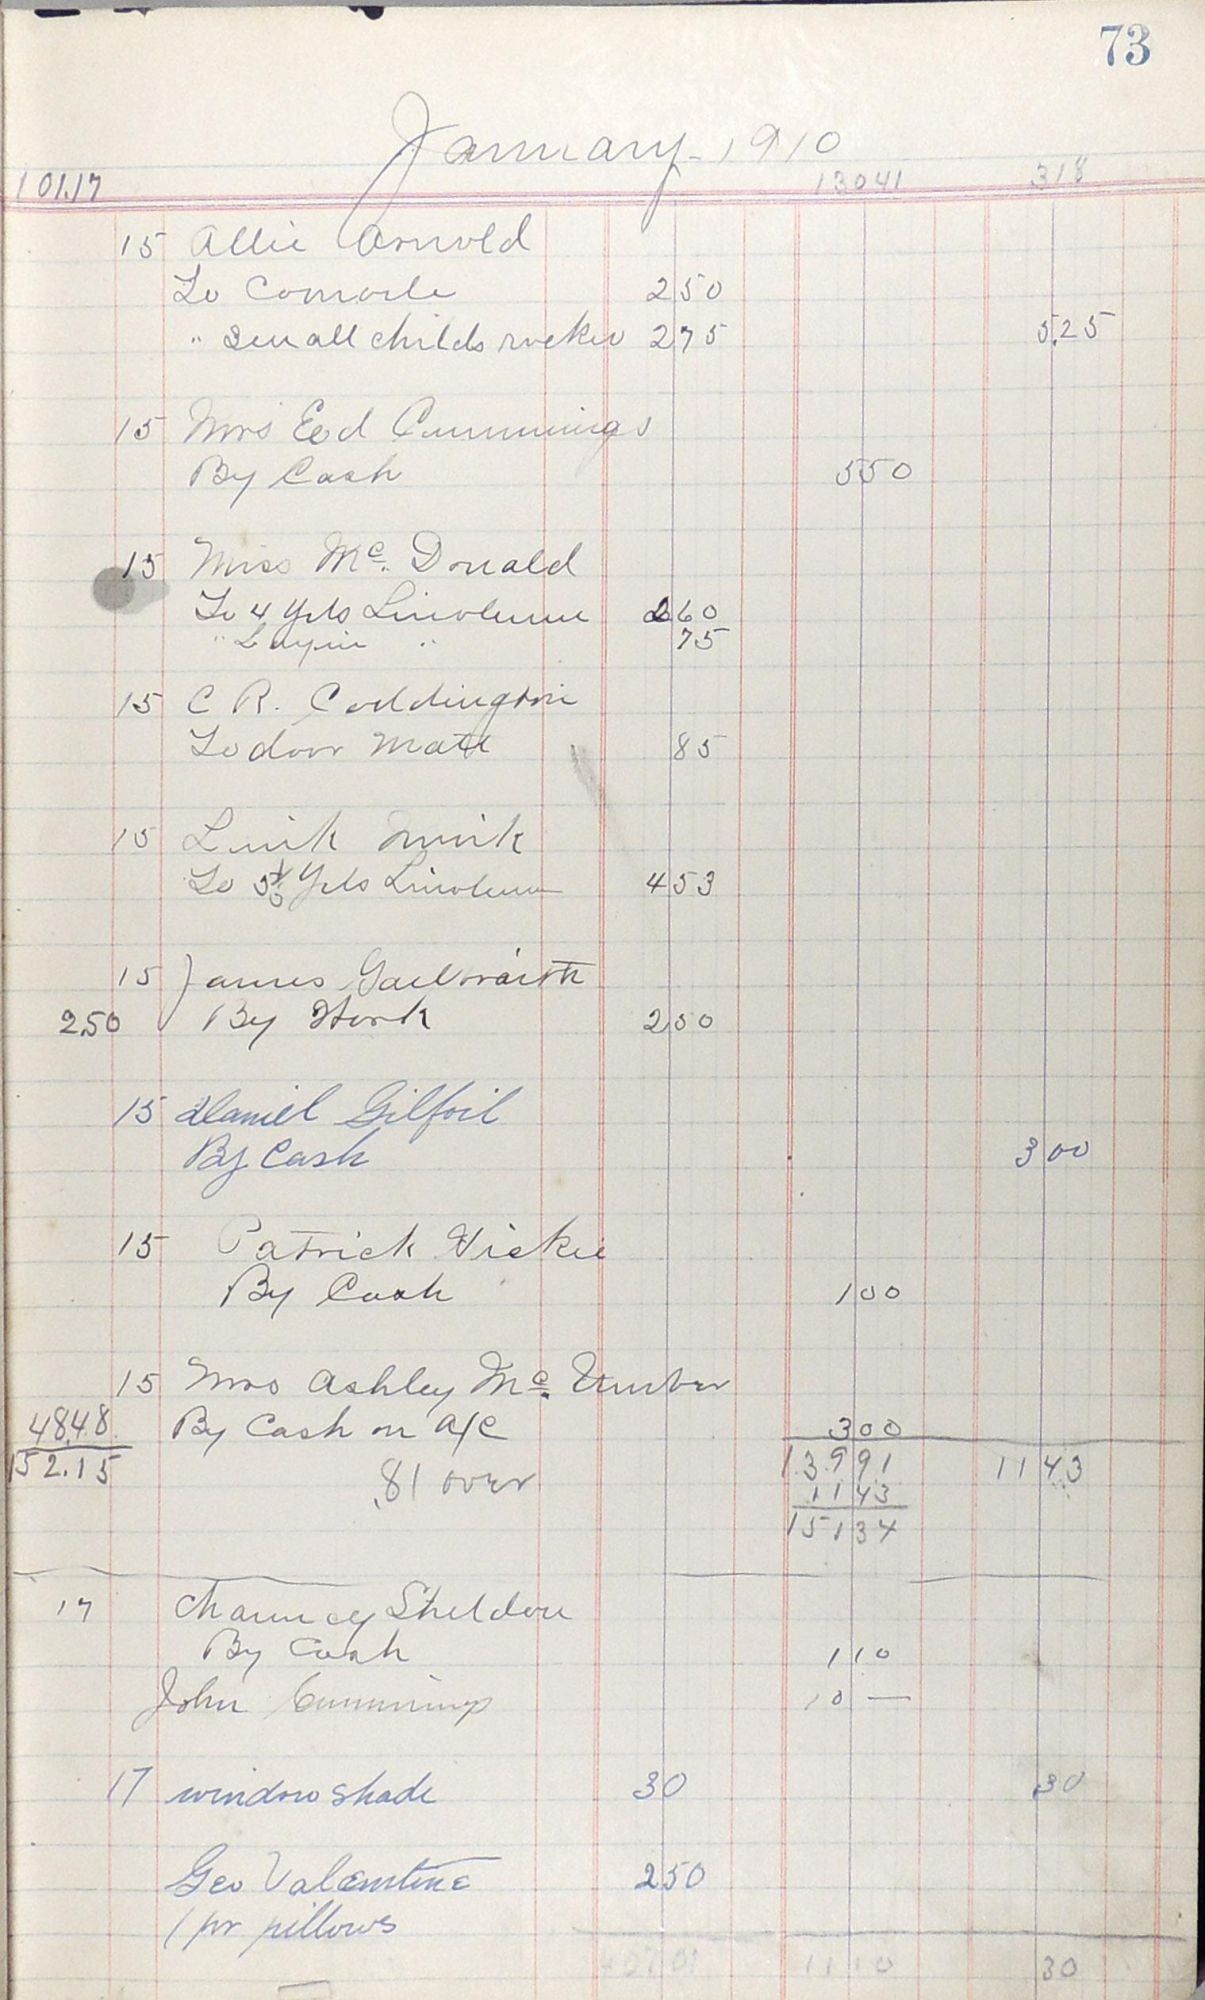 73
January 1910
101.17 13041 318
15 Allie Arnold
To Comode 250
" Small childs rocker 275 5.25
15 Mrs Ed Cummings
By Cash 550
15 Miss Mc. Donald
To 4 Yds Linoleum 260
" Layin " 75
15 C R. Coddington
To door Matt 85
15
To Yds Linoleum 453
15 James
250 By Work 250
15 Daniel Gilfoil
By Cash 300
15 Patrick Hickie
By Cash 100
15 Mrs Ashley Mc. Umber
48.48 By Cash on a/c 300
152.15 13991 1143
.81 over 1143
15134
17 Chauncey Sheldon
By Cash 110
John Cummings 10 —
17 window shade 30 30
Geo Valentine 250
1 pr pillows
1110 30